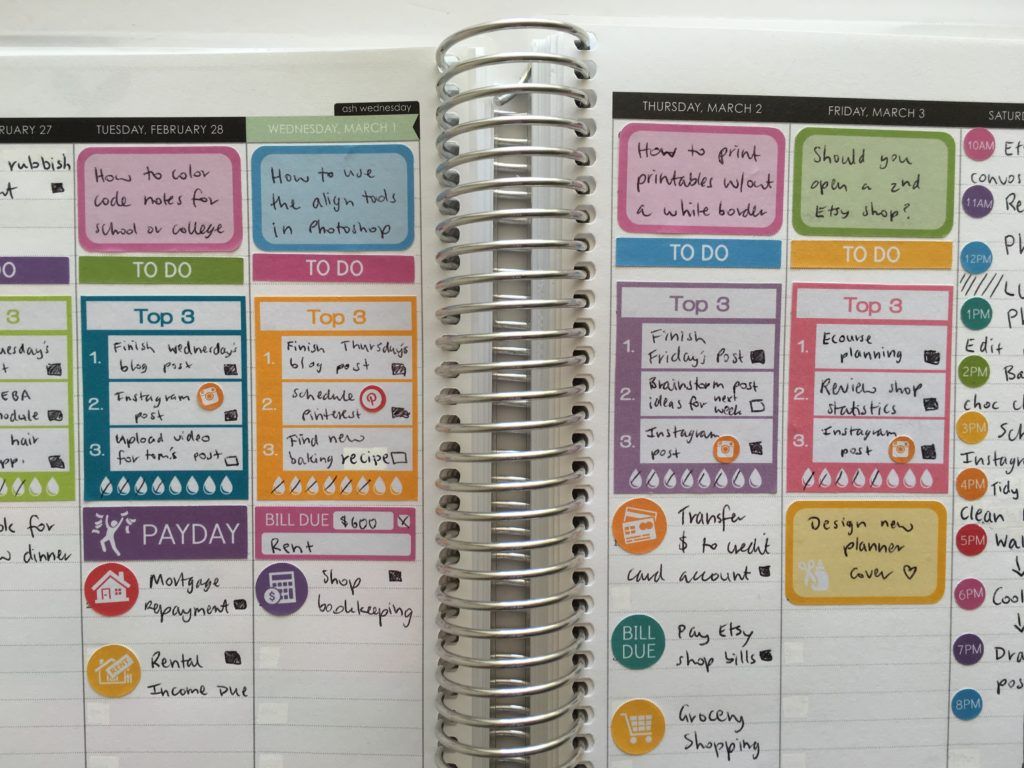 ash wednesday
RUARY 27
rubbish
DO
3
uesday's
EBA
module
hair
app.
dinner
TUESDAY, FEBRUARY 28
How to color
code notes for
school or college
TO DO
Top 3
1. Finish wednesday's
blog post
2. Instagram
post
3. Upload video
for tom's post
PAYDAY
Mortgage
Repayment
Rental
Income Due
WEDNESDAY, MARCH 1
How to use
the align tools
in Photoshop
TO DO
Top 3
1. Finish Thursday's
blog post
2. Schedule
Pinterest
3. Find new
baking recipe
BILL DUE $600
Rent
Shop
bookkeeping
THURSDAY, MARCH 2
How to print
printables w/out
a white border
TO DO
Top 3
1. Finish
Friday's Post
2. Brainstorm post
ideas for next
week
3. Instagram
post
Transfer
$ to credit
card account
BILL
DUE
Pay Etsy
shop bills
Grocery
Shopping
FRIDAY, MARCH 3
Should you
open a 2nd
Etsy shop?
TO DO
Top 3
1. Ecourse
planning
2. Review shop
statistics
3. Instagram
post
Design new
planner
cover ♡
SATUR
10AM Et
convos
11AM Re
12PM Ph
Lu
1PM Pl
Edit
2PM Ba
choc ch
3PM Sch
Instagra
4PM Tidy
Clean
5PM Wal
6PM Coo
7PM Dra
pos
8PM